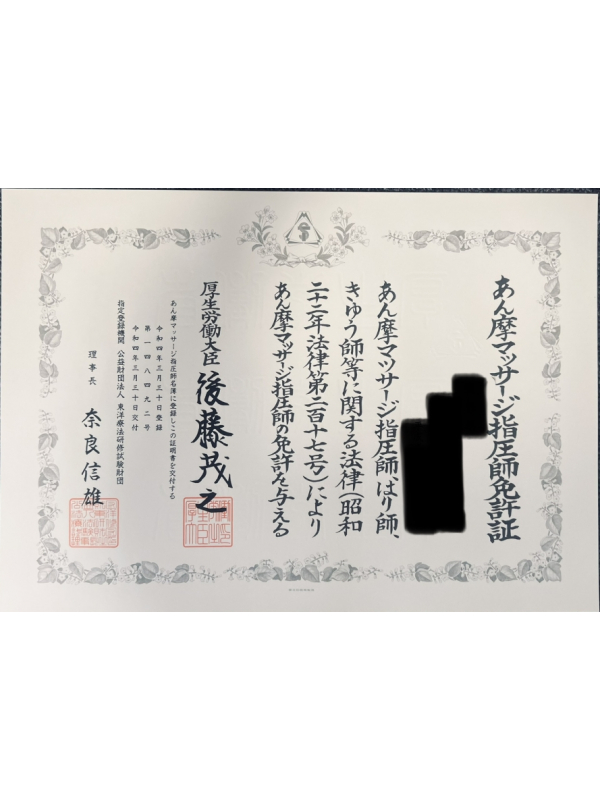 あん摩マッサージ指圧師免許証
あん摩マッサージ指圧師、はり師、
きゆう師等に関する法律(昭和
二十二年法律第二百十七号)により
あん摩マッサージ指圧師の免許を与える
厚生労働大臣 後藤茂之
あん摩マッサージ指圧師名簿に登録しこの証明書を交付する
令和四年三月三十日登録
第一四八四九二号
令和四年三月三十日交付
指定登録機関 公益財団法人 東洋療法研修試験財団
理事長 奈良信雄